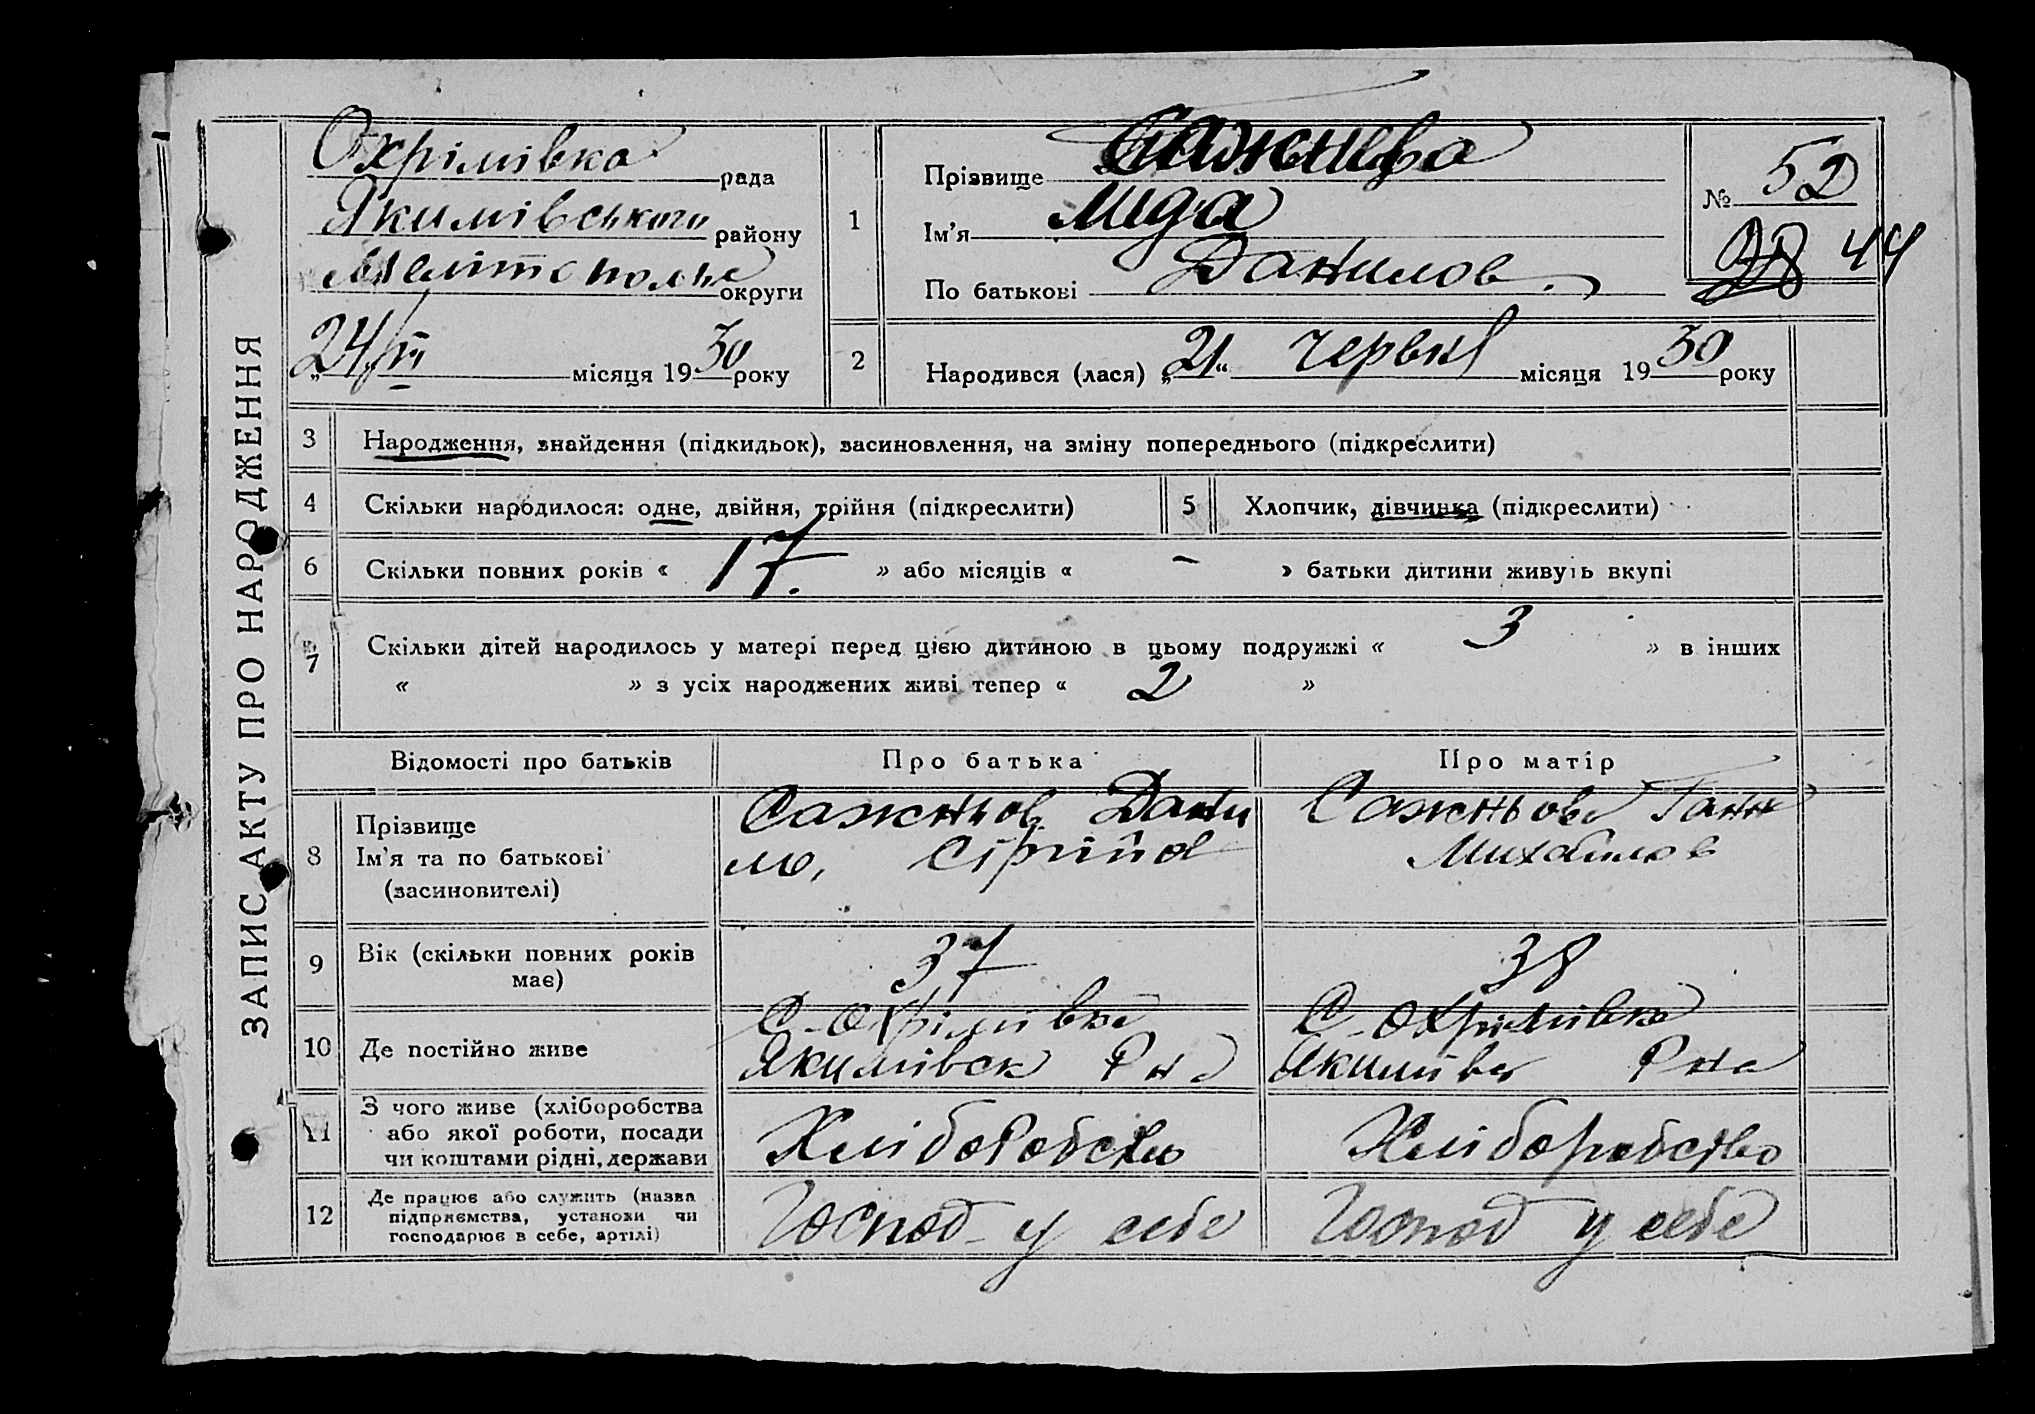 ЗАПИС АКТУ ПРО НАРОДЖЕННЯ
Охрімівка рада
Якимівського району
округи
24/VI місяця 1930 року
1
Прізвище Сажнева
Ім'я Лида
По батькові Данилов.
№ 52
28 44
2
Народився (лася) „21“ червня місяця 1930 року
3 Народження, знайдення (підкидьок), засиновлення, на зміну попереднього (підкреслити)
4 Скільки народилося: одне, двійня, трійня (підкреслити)
5 Хлопчик, дівчинка (підкреслити)
6 Скільки повних років « 17. » або місяців « - » батьки дитини живуть вкупі
7 Скільки дітей народилось у матері перед цією дитиною в цьому подружжі « 3 » в інших
« » з усіх народжених живі тепер « 2 »
Відомості про батьків Про батька Про матір
8 Прізвище
Ім'я та по батькові
(засиновителі)
Сажньов Дани
ло,
Сажньова Ганн
Михайлов
9 Вік (скільки повних років
має)
37
38
10 Де постійно живе
С-Охрімівка
Якимівск Р на
С-Охрімівка
Якимівск Р на
11 З чого живе (хліборобства
або якої роботи, посади
чи коштами рідні, держави
Хліборобство
Хліборобство
12 Де працює або служить (назва
підприємства, установи чи
господарює в себе, артілі)
Господ-у себе
Господ у себе